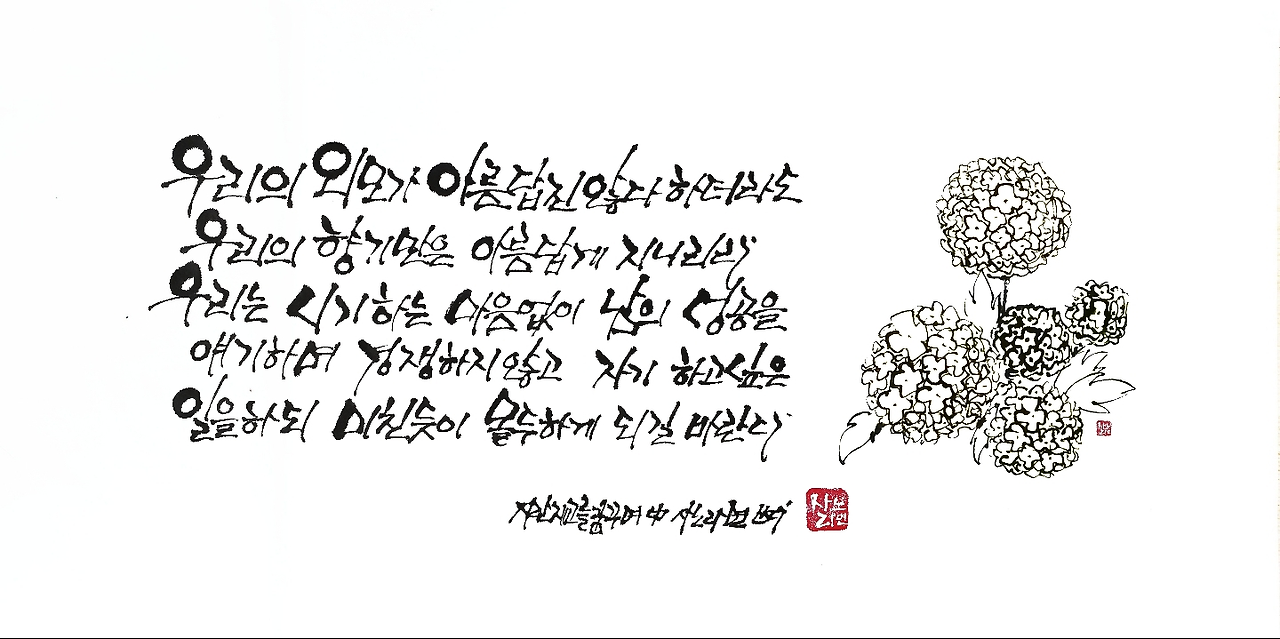 우리의 외모가 아름답진 않다 하더라도
우리의 향기만은 아름답게 지니리라
우리는 시기하는 마음없이 남의 성공을
얘기하며 경쟁하지 않고 자기 하고싶은
일을 하되 미친듯이 몰두하게 되길 바란다
지란지교를 꿈꾸며 中